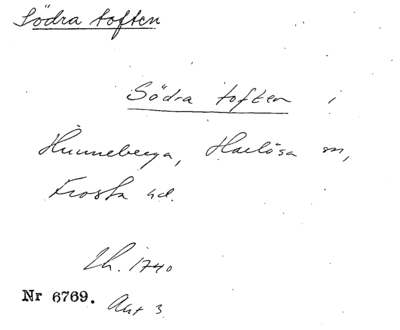 Södra toften
Södra toften i
Hunneberga, Harlösa sn,
Frosta hd.
Lh. 1740
Nr 6769. Akt 3